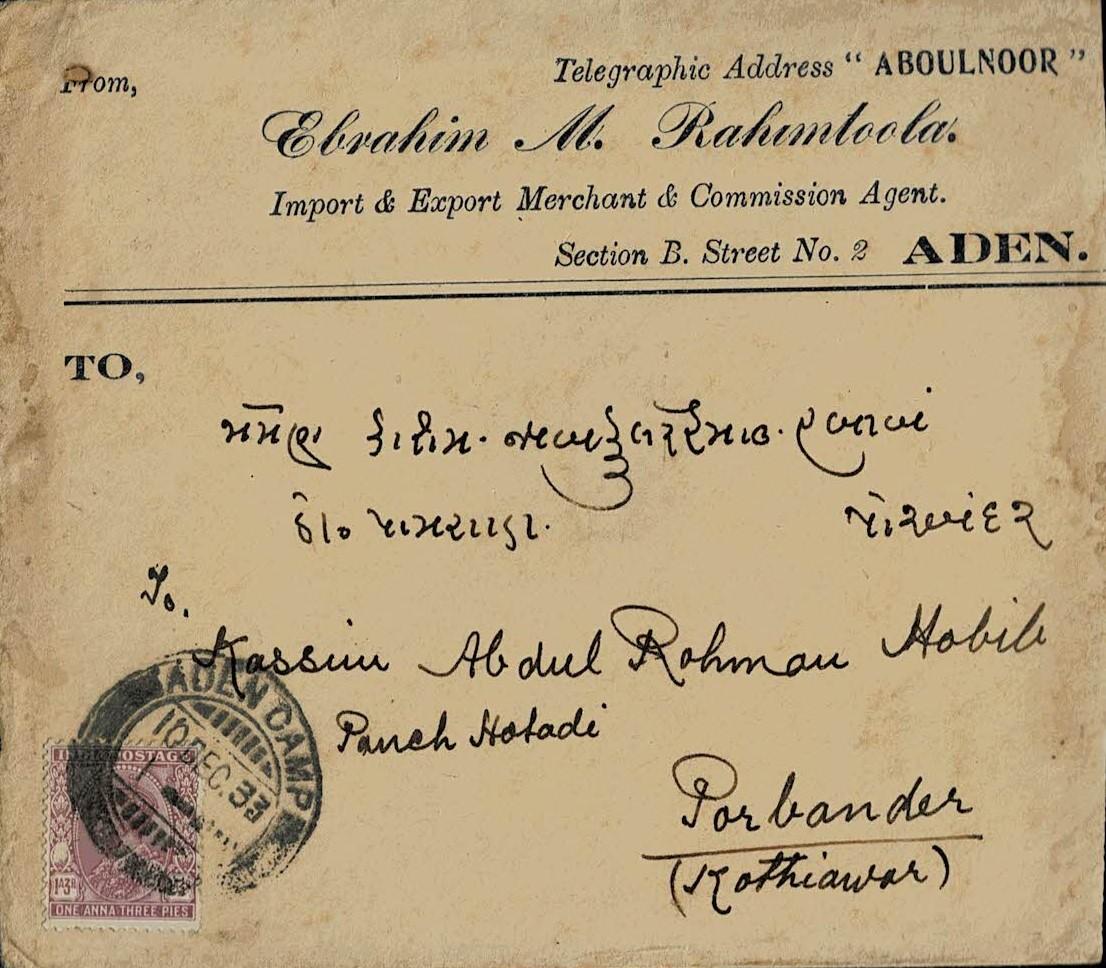 From,
Telegraphic Address " ABOULNOOR "
Ebrahim M. Rahimtoola.
Import & Export Merchant & Commission Agent.
Section B. Street No. 2 ADEN.
TO,
પોરબંદર
To.
Kassim Abdul Rohman Hobib
Panch Hotadi
Porbander
(Kothiawar)
ADEN CAMP
10 DEC. 33
INDIA POSTAGE
1A3P
ONE ANNA THREE PIES